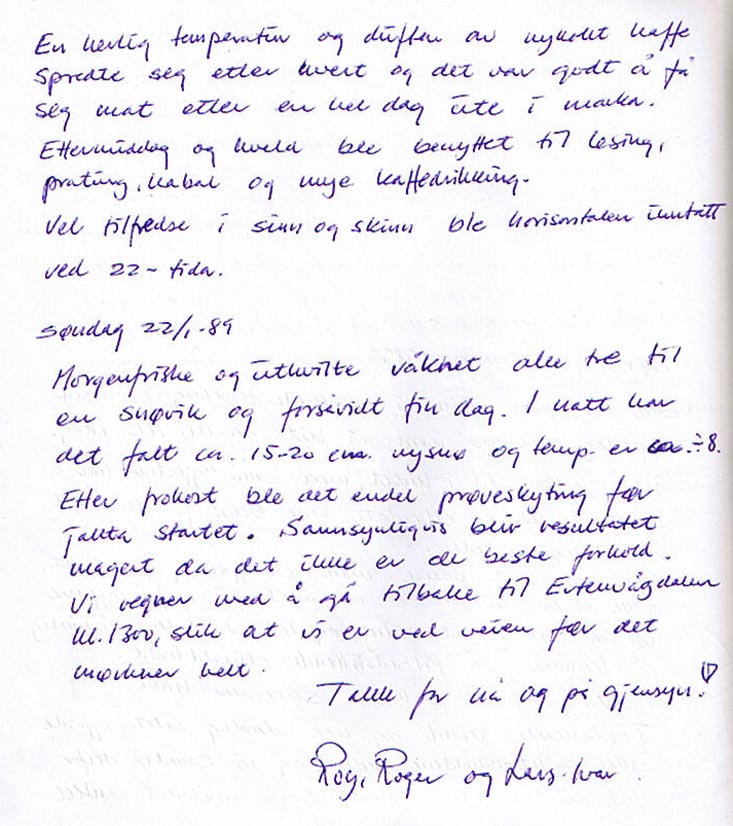 En herlig temperatur og duften av nykokt kaffe
spredte seg etter hvert og det var godt å få
seg mat etter en hel dag ute i marka.
Ettermiddag og kveld ble benyttet til lesing,
prating, kabal og mye kaffedrikking.
Vel tilfredse i sinn og skinn ble horisontalen inntatt
ved 22-tida.
Søndag 22/1-89
Morgenfriske og uthvilte våknet alle tre til
en snørik og forsåvidt fin dag. I natt har
det falt ca. 15-20 cm. nysnø og temp. er ca. ÷8.
Etter frokost ble det endel prøveskyting før
jakta startet. Sannsynligvis blir resultatet
magert da det ikke er de beste forhold.
Vi regner med å gå tilbake til Evtenvågdalen
kl. 1300, slik at vi er ved veien før det
mørkner helt.
Takk for nå og på gjensyn!
Roy, Roger og Lars-Ivar